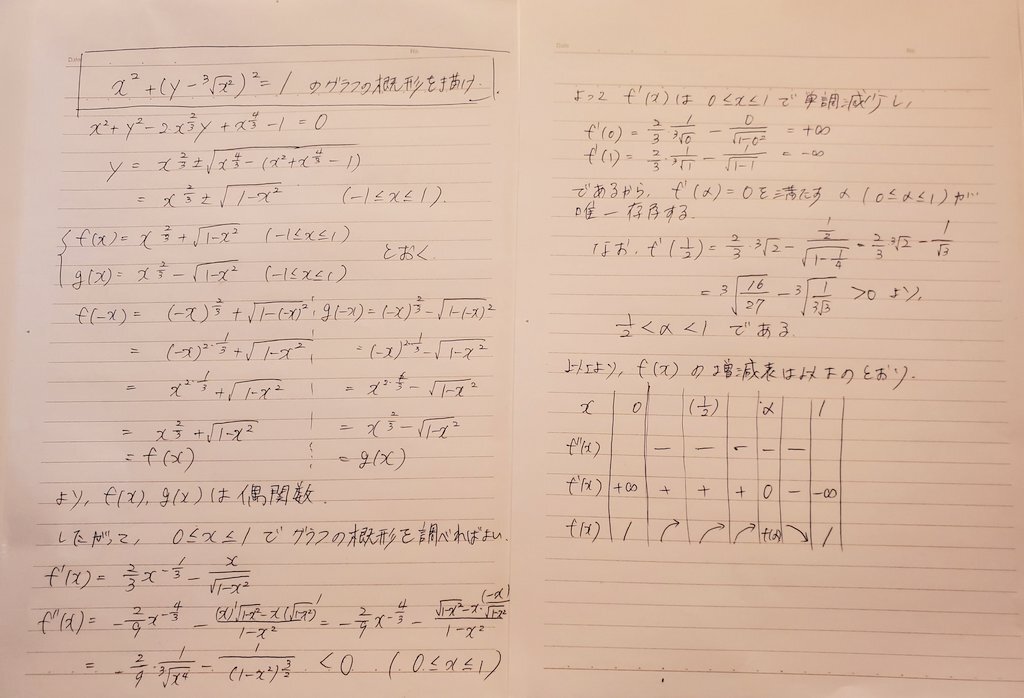 x² + (y - ³√x²)² = 1 のグラフの概形を描け.
x² + y² - 2・x^{2/3}y + x^{4/3} - 1 = 0
y = x^{2/3} ± √(x^{4/3} - (x² + x^{4/3} - 1))
= x^{2/3} ± √(1-x²) (-1≤x≤1).
f(x) = x^{2/3} + √(1-x²) (-1≤x≤1)
とおく.
g(x) = x^{2/3} - √(1-x²) (-1≤x≤1)
f(-x) = (-x)^{2/3} + √(1-(-x)²) g(-x) = (-x)^{2/3} - √(1-(-x)²)
= (-x)^{2・1/3} + √(1-x²) = (-x)^{2・1/3} - √(1-x²)
= x^{2・1/3} + √(1-x²) = x^{2・1/3} - √(1-x²)
= x^{2/3} + √(1-x²) = x^{2/3} - √(1-x²)
= f(x) = g(x)
より, f(x), g(x) は 偶関数.
したがって, 0≤x≤1 で グラフの概形を調べればよい.
f'(x) = 2/3 x^{-1/3} - x/√(1-x²)
f''(x) = -2/9 x^{-4/3} - ((x)'√(1-x²) - x(√(1-x²))')/(1-x²) = -2/9 x^{-4/3} - (√(1-x²) - x・(-x)/√(1-x²))/(1-x²)
= -2/9・1/³√x⁴ - 1/(1-x²)^{3/2} < 0 (0≤x≤1)
よって f'(x) は 0≤x≤1 で 単調減少し,
f'(0) = 2/3・1/³√0 - 0/√(1-0²) = +∞
f'(1) = 2/3・1/³√1 - 1/√(1-1) = -∞
であるから, f'(α) = 0 を満たす α (0≤α≤1) が
唯一存在する.
なお, f'(1/2) = 2/3・³√2 - (1/2)/√(1-1/4) = 2/3・³√2 - 1/√3
= ³√(16/27) - ³√(1/(3√3)) > 0 より,
1/2 < α < 1 である.
以上より, f(x) の 増減表は以下のとおり.
x 0 (1/2) α 1
f''(x) - - - - -
f'(x) +∞ + + + 0 - -∞
f(x) 1 ↗ ↗ ↗ f(α) ↘ 1